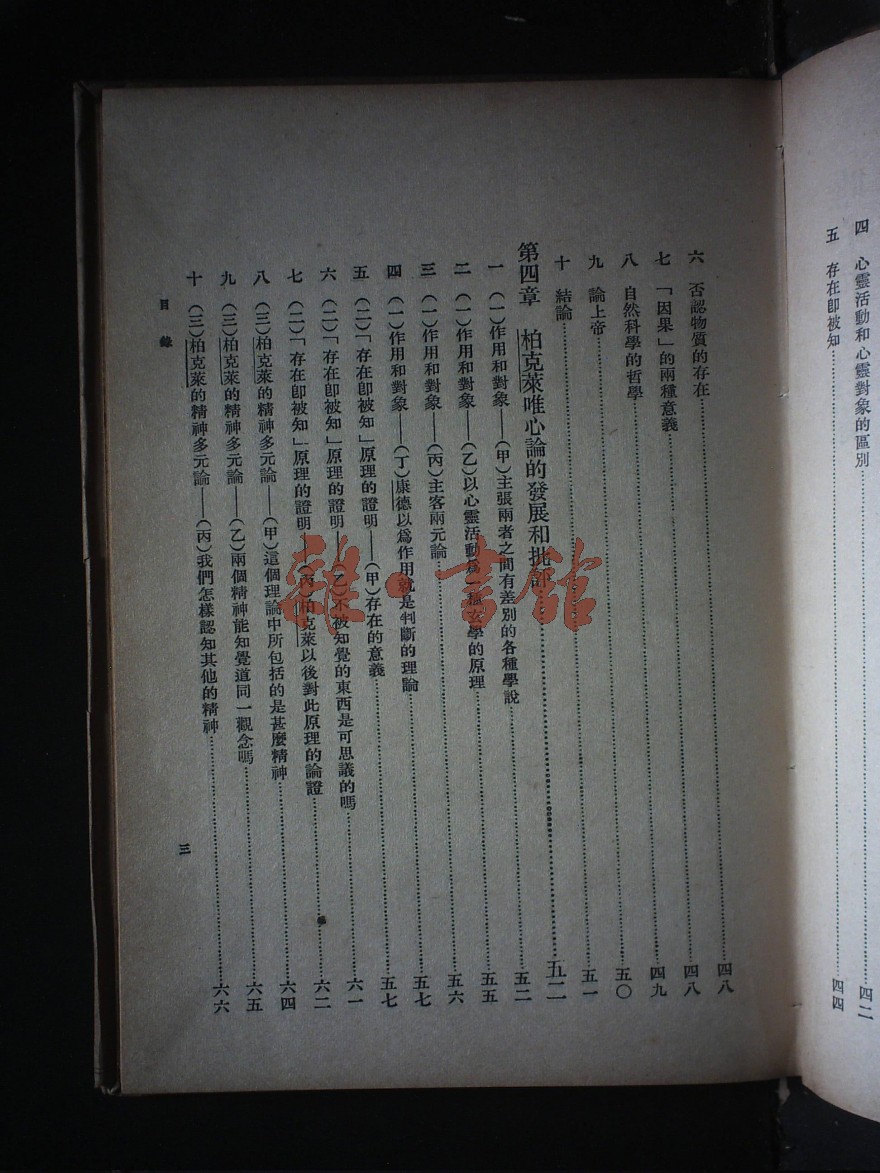 四　心靈活動和心靈對象的區別……四二
五　存在卽被知……四四
六　否認物質的存在……四八
七　「因果」的兩種意義……四八
八　自然科學的哲學……四九
九　論上帝……五〇
十　結論……五一
第四章　柏克萊唯心論的發展和批評……五二
一　(一)作用和對象——(甲)主張兩者之間有差別的各種學說……五二
二　(一)作用和對象——(乙)以心靈活動爲一種玄學的原理……五五
三　(一)作用和對象——(丙)主客兩元論……五六
四　(一)作用和對象——(丁)康德以爲作用就是判斷的理論……五七
五　(二)「存在卽被知」原理的證明——(甲)存在的意義……五七
六　(二)「存在卽被知」原理的證明——(乙)不被知覺的東西是可思議的嗎……六一
七　(二)「存在卽被知」原理的證明——(丙)柏克萊以後對此原理的論證……六二
八　(三)柏克萊的精神多元論——(甲)這個理論中所包括的是甚麼精神……六四
九　(三)柏克萊的精神多元論——(乙)兩個精神能知覺道同一觀念嗎……六五
十　(三)柏克萊的精神多元論——(丙)我們怎樣認知其他的精神……六六
目錄
三
雜·書館